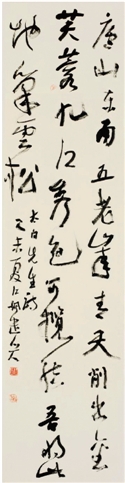 廬山东南五老峯青天削出金
芙蓉九江秀色可攬結吾將此
地巢雲松
太白先生詩
乙未夏